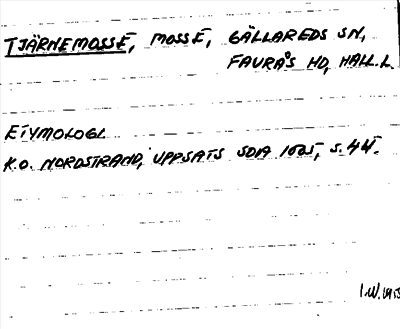 TJÄRNEMOSSE, MOSSE, GÄLLAREDS SN,
FAURÅS HD, HALL.L.
ETYMOLOGI.
K.O. NORDSTRAND, UPPSATS SOIA S. 44.
I.W.